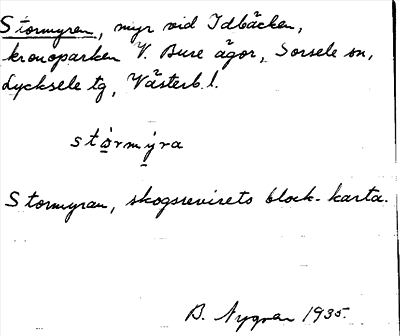 Stormyren, myr vid Idbäcken,
kronoparken V. Bure ägor, Sorsele sn,
Lycksele tg, Västerb. l.
stòrmýra
Stormyran, skogsrevirets block-karta.
B. Nygren 1935.